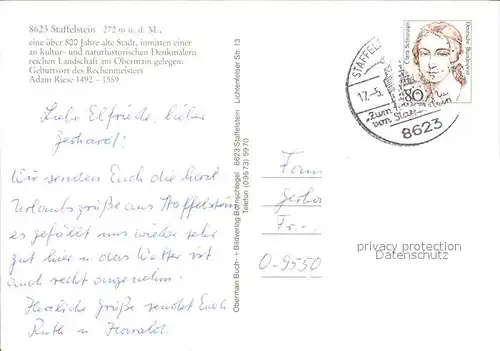 8623 Staffelstein 272 m ü. d. M.,
eine über 800 Jahre alte Stadt, inmitten einer
an kultur- und naturhistorischen Denkmälern
reichen Landschaft am Obermain gelegen.
Geburtsort des Rechenmeisters
Adam Riese 1492 – 1559
Liebe Elfriede, lieber
Gerhard!
Wir senden Euch die herzl
Urlaubsgrüße aus Staffelstein
es gefällt uns wieder sehr
gut hier u. das Wetter ist
auch recht angenehm.
Herzliche Grüße sendet Euch
Ruth u. Harald.
Obermain Buch- + Bildverlag Bornschlegel 8623 Staffelstein Lichtenfelser Str. 13
Telefon (09573) 5970
Clara Schumann
Deutsche Bundespost
80
STAFFELS
17.-5.
"Zum
von Staf
8623
Fam
Gerha
Fr.-.
O-9550
privacy protection
Datenschutz